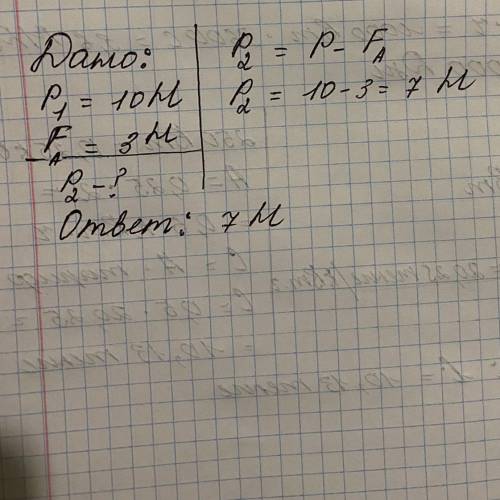 Дано:
P₁ = 10 Н
F_A = 3 Н
P₂ - ?
P₂ = P - F_A
P₂ = 10 - 3 = 7 Н
Ответ: 7 Н